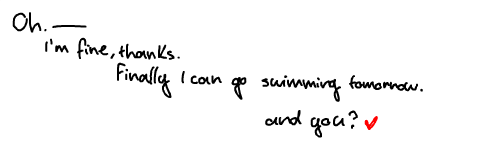 Oh.
I'm fine, thanks.
Finally I can go swimming tomorrow.
and you?